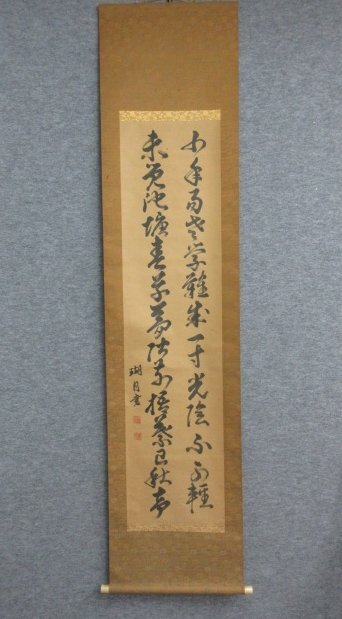 少年易老学難成一寸光陰不可軽
未覚池塘春草夢階前梧葉已秋声
湖月書